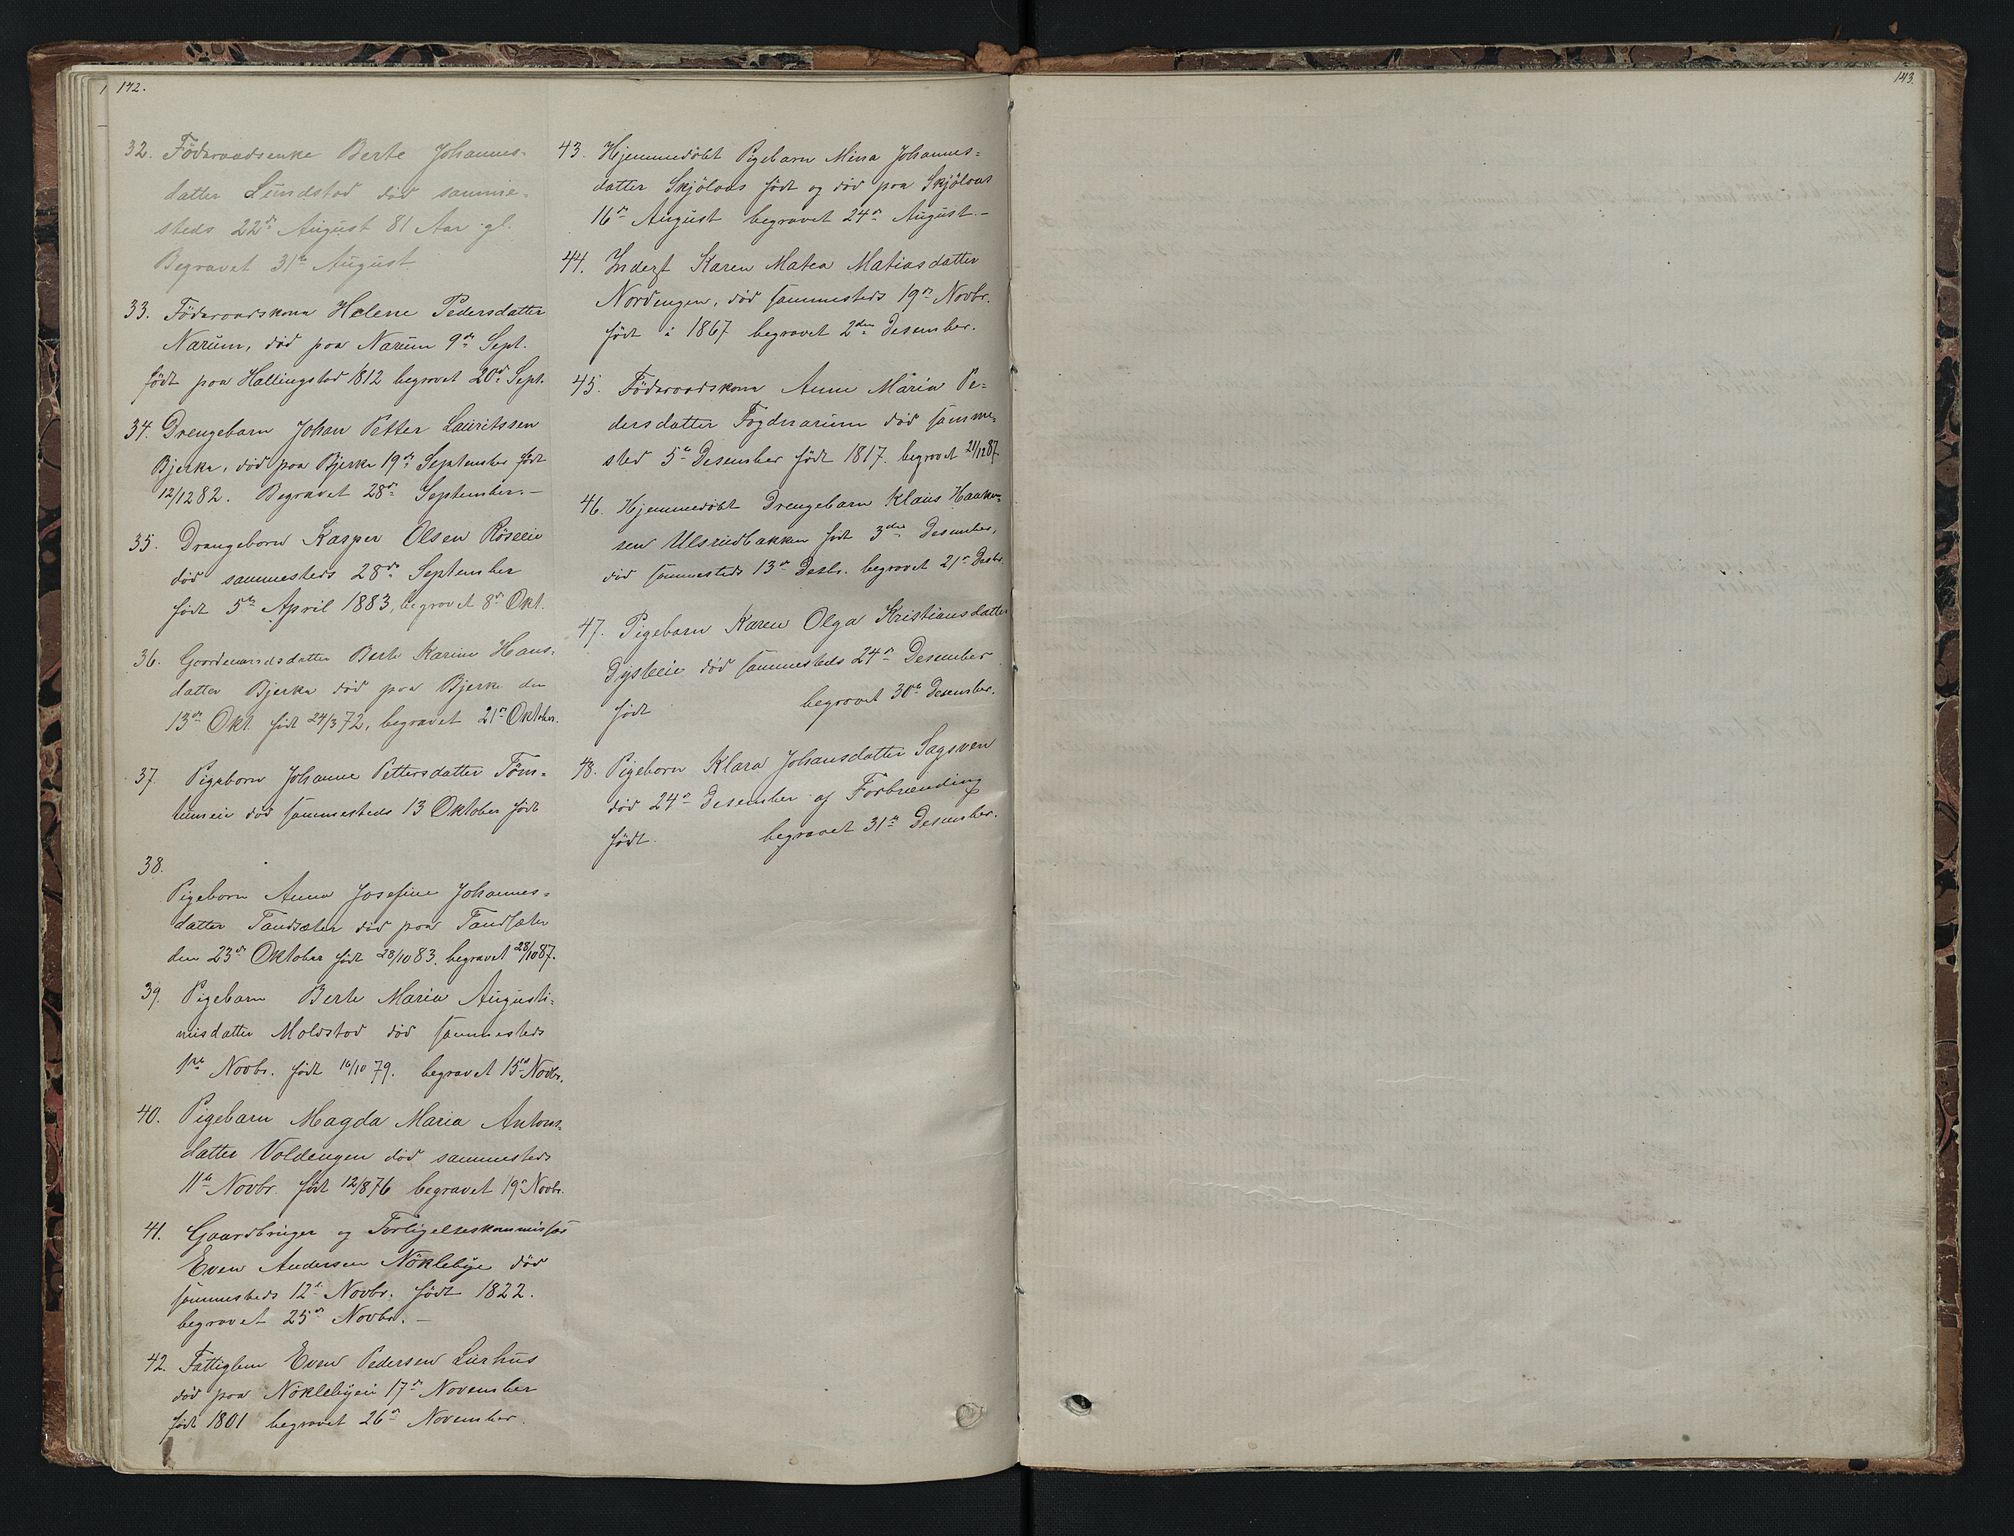 142.
32. Föderaadsenke Berte Johannes-
datter Lundstad död samme-
steds 22de August 81 Aar gl.
Begravet 31te August.
33. Föderaadskona Helene Pedersdatter
Narum, död paa Narum 9de Sept.
födt paa Hallingstad 1812 begravet 20de Sept.
34. Drengebarn Johan Petter Lauritssen
Bjerke, död paa Bjerke 19de September födt
12/12 82. Begravet 28de September.-
35. Drengebarn Kasper Olsen Röseeie
död sammesteds 28de September
födt 5te April 1883, begravet 8de Okt.
36. Gaardmandsdatter Berte Karine Hans-
datter Bjerke död paa Bjerke den
13de Okt. födt 24/3 72, begravet 21de Oktober.
37. Pigebarn Johanne Pettersdatter Töm-
teneie död sammesteds 13 Oktober födt
38.
Pigebarn Anna Josefine Johannes-
datter Tandsæter död paa Tandsæter
den 23de Oktober födt 28/10 83. begravet 28/10 87.
39. Pigebarn Berte Maria Augusti-
nusdatter Moldstad död sammesteds
1ste Novbr. födt 16/10 79. begravet 15de Novbr.
40. Pigebarn Magda Maria Antons-
datter Voldengen död sammesteds
11te Novbr. födt 12/8 76 begravet 19de Novbr.
41. Gaardbruger og Forligelseskommissær
Even Andersen Nöklebye död
sammesteds 12te Novbr. födt 1822.
begravet 25de Novbr. -
42. Fattiglem Even Pedersen Lurhus
död paa Nöklebyeie 17de November
födt 1801 begravet 26de November.
43. Hjemmedöbt Pigebarn Mina Johannes-
datter Skjölaas födt og död paa Skjölaas
16de August begravet 24de August.-
44. Inderst Karen Matea Matiasdatter
Nordengen, död sammesteds 19de Novbr.
födt i 1867 begravet 2den Desember.
45. Föderaadskona Anne Maria Pe-
dersdatter Fogdnarum död samme-
sted 5te Desember födt 1817. begravet 21/12 87.
46. Hjemmedöbt Drengebarn Klaus Haaken-
sen Ulsrudbakken födt 3die Desember,
död sammesteds 13de Desbr. begravet 21de Desbr.
47. Pigebarn Karen Olga Kristiansdatter
Dysteeie död sammesteds 24de Desember
födt begravet 30te Desember.
48. Pigebarn Klara Johansdatter Sagsveen
död 24de Desember af Forbrænding
födt. begravet 31te Desember.
143.